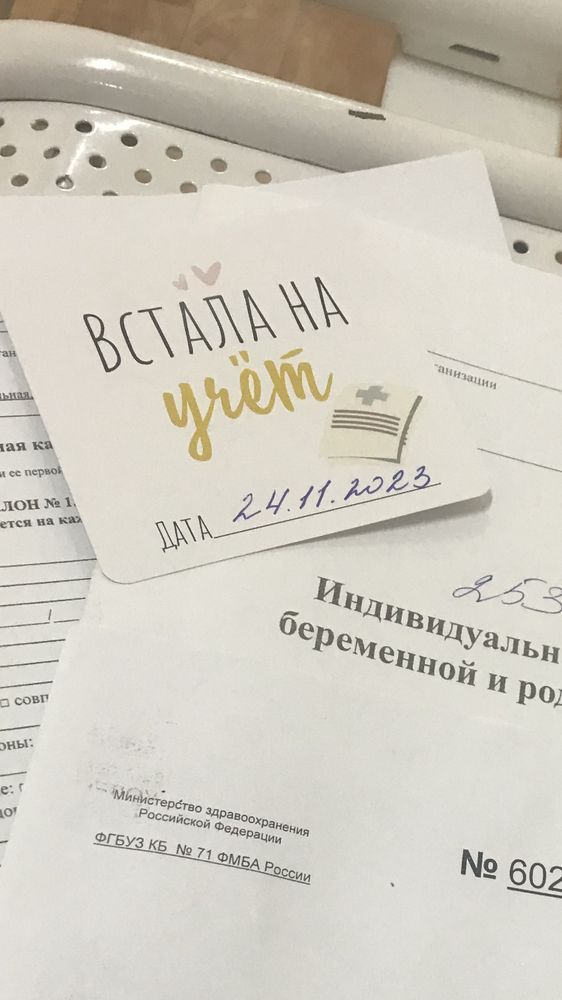 ВСТАЛА НА
учёт
ДАТА 24.11.2023
ная ка
и ее перво
ЛОН № 1.
ется на ка
□ совп
оны:
анизации
253
Индивидуальн
беременной и род
Министерство здравоохранения
Российской Федерации
ФГБУЗ КБ № 71 ФМБА России
№ 602